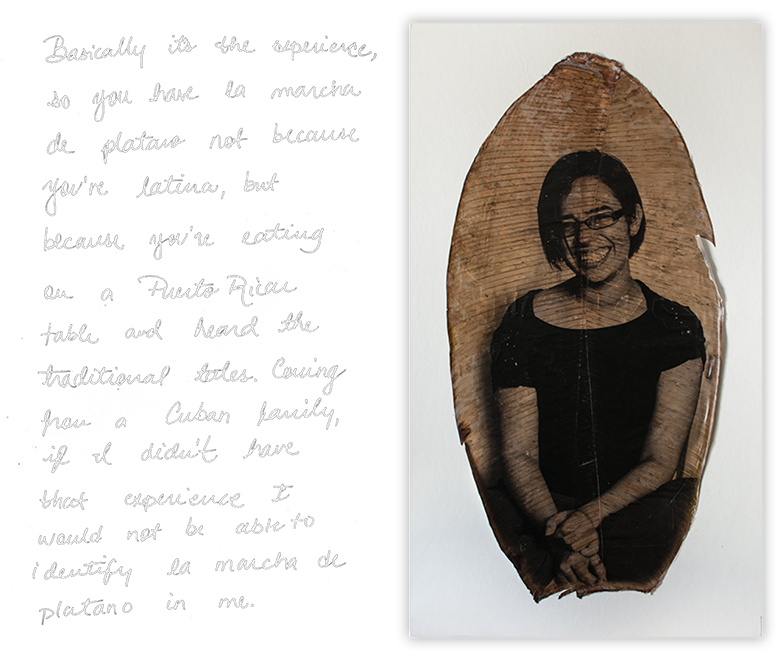 Basically it's the experience,
so you have la marcha
de platano not because
you're latina, but
because you're eating
on a Puerto Rican
table and heard the
traditional tales. Coming
from a Cuban family,
if I didn't have
that experience I
would not be able to
identify la marcha de
platano in me.